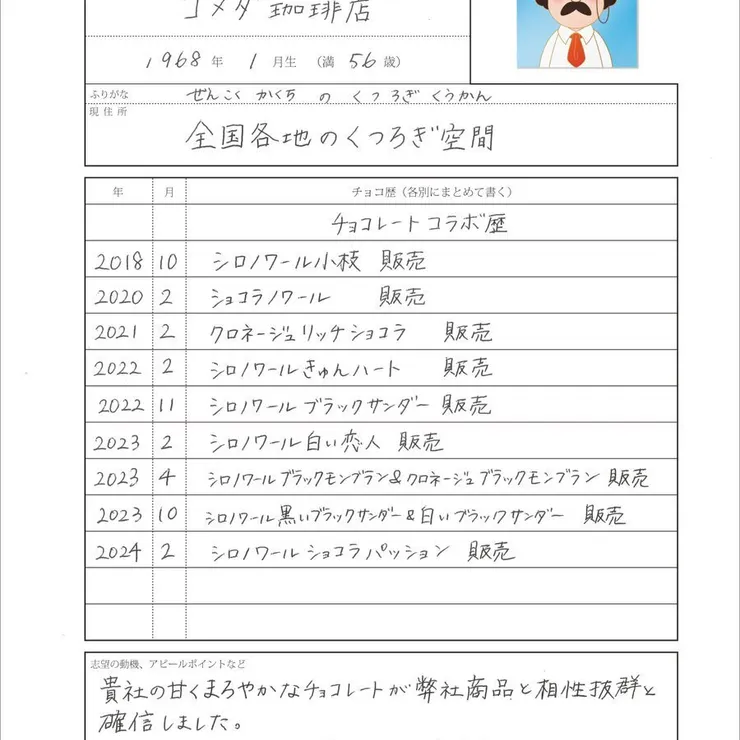 コメダ珈琲店
1968年 1月生（満56歳）
ふりがな ぜんこく かくち の くつろぎ くうかん
現住所
全国各地のくつろぎ空間
年 月 チョコ歴（各別にまとめて書く）
チョコレートコラボ歴
2018 10 シロノワール小枝 販売
2020 2 ショコラノワール 販売
2021 2 クロネージュリッチショコラ 販売
2022 2 シロノワールきゅんハート 販売
2022 11 シロノワールブラックサンダー 販売
2023 2 シロノワール白い恋人 販売
2023 4 シロノワールブラックモンブラン&クロネージュブラックモンブラン 販売
2023 10 シロノワール黒いブラックサンダー&白いブラックサンダー 販売
2024 2 シロノワールショコラパッション 販売
志望の動機、アピールポイントなど
貴社の甘くまろやかなチョコレートが弊社商品と相性抜群と
確信しました。